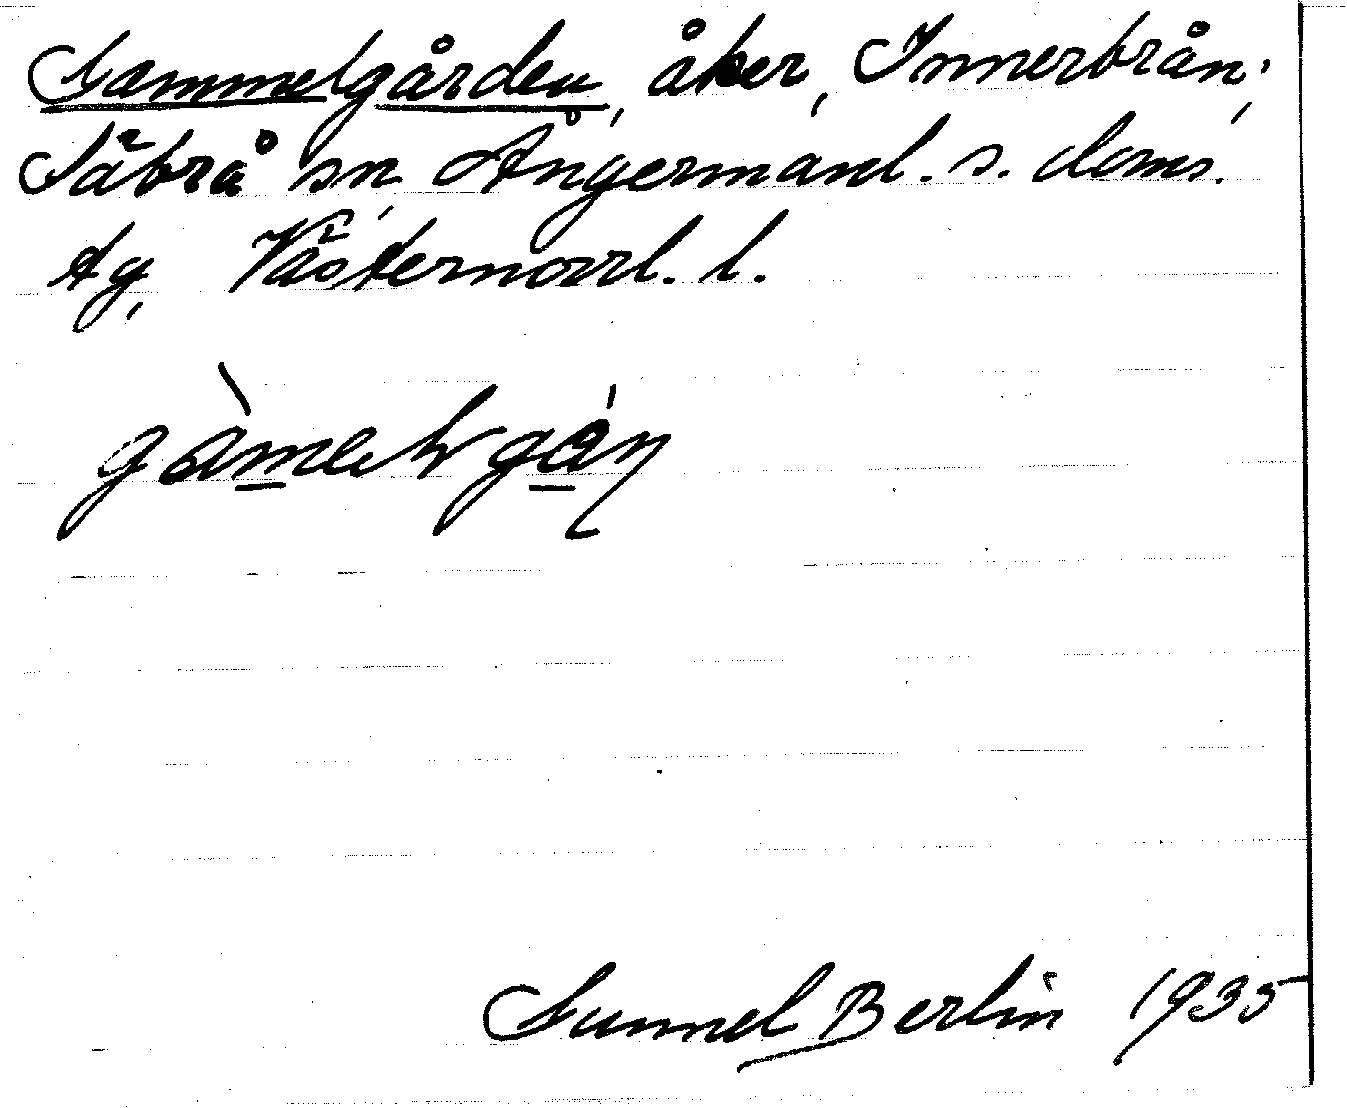 Gammelgården, åker, Innerbrån,
Säbrå sn, Ångermanl. s. doms.
tg, Västernorrl. l.
Gunnel Berlin 1935